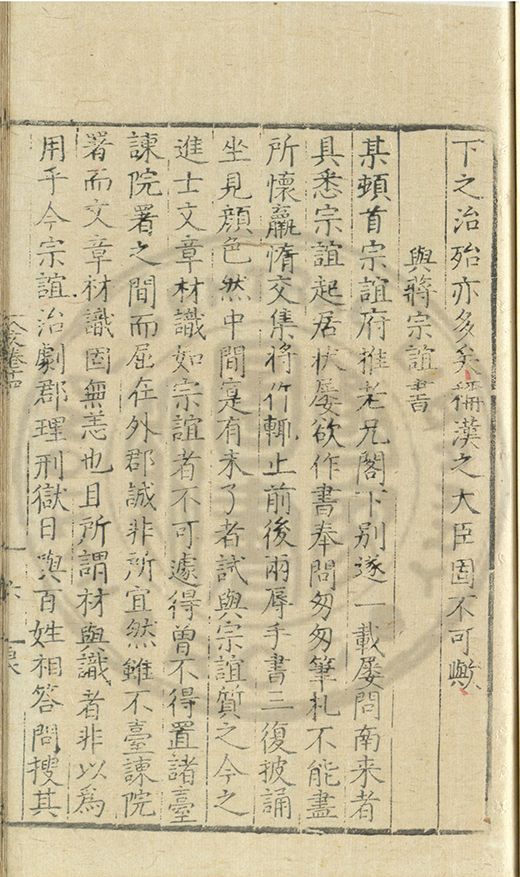 下之治殆亦多矣稱漢之大臣固不可歟
與蔣宗誼書
某頓首宗誼府推老兄閣下别遂一載屡問南来者
具悉宗誼起居状屡欲作書奉問匆匆筆札不能盡
所懷羸惰交集将作輒止前後兩辱手書三復披誦
坐見顔色然中間寔有未了者試與宗誼質之今之
進士文章材識如宗誼者不可遽得曽不得置諸臺
諫院署之間而屈在外郡誠非所宜然雖不臺諫院
署而文章材識固無恙也且所謂材與識者非以為
用乎今宗誼治劇郡理刑獄日與百姓相答問搜其